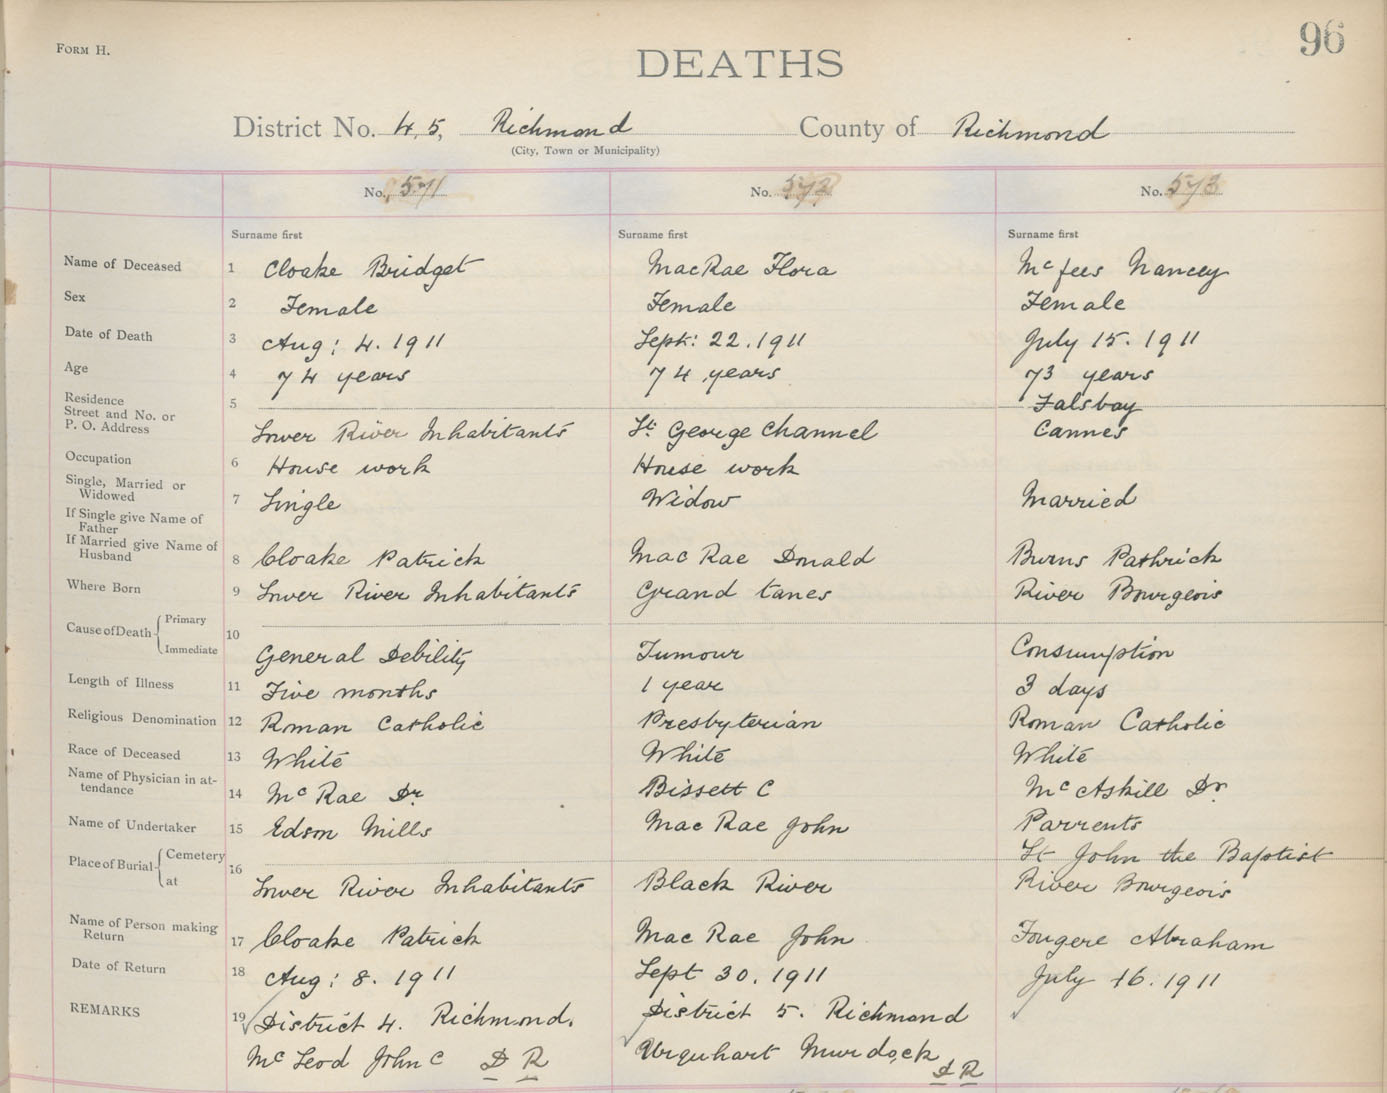 FORM H.
96
DEATHS
District No. 4, 5, Richmond County of Richmond
(City, Town or Municipality)
No. 571 No. 572 No. 573
Surname first Surname first Surname first
Name of Deceased 1 Cloake Bridget MacRae Flora McFees Nancey
Sex 2 Female Female Female
Date of Death 3 Aug: 4. 1911 Sept: 22. 1911 July 15. 1911
Age 4 74 years 74 years 73 years
Residence 5 Falsbay
Street and No. or
P. O. Address Lower River Inhabitants St. George Channel Cannes
Occupation 6 House work House work
Single, Married or
Widowed 7 Single Widow Married
If Single give Name of
Father
If Married give Name of
Husband 8 Cloake Patrick MacRae Donald Burns Pathrick
Where Born 9 Lower River Inhabitants Grand tanes River Bourgeois
Cause of Death Primary 10
Immediate General Debility Tumour Consumption
Length of Illness 11 Five months 1 year 3 days
Religious Denomination 12 Roman Catholic Presbyterian Roman Catholic
Race of Deceased 13 White White White
Name of Physician in at-
tendance 14 McRae Dr Bissett C McAskill Dr
Name of Undertaker 15 Edson Mills MacRae John Parrents
Place of Burial Cemetery 16 St John the Baptist
at Lower River Inhabitants Black River River Bourgeois
Name of Person making
Return 17 Cloake Patrick MacRae John Fougere Abraham
Date of Return 18 Aug: 8. 1911 Sept 30. 1911 July 16. 1911
REMARKS 19 District 4. Richmond. District 5. Richmond
McLeod John C D R Urquhart Murdock D R